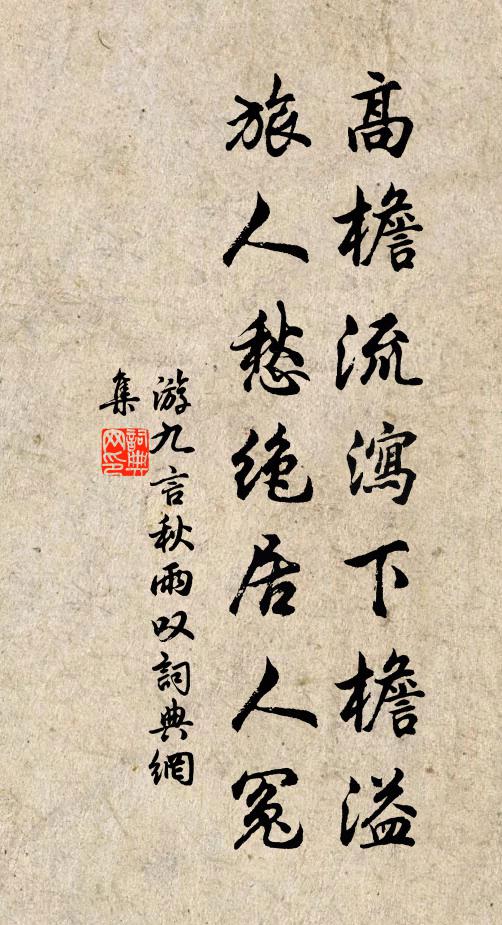 高檐流瀉下檐溢
旅人愁绝居人冤
游九言秋雨叹詞典網
集
詞典
网印